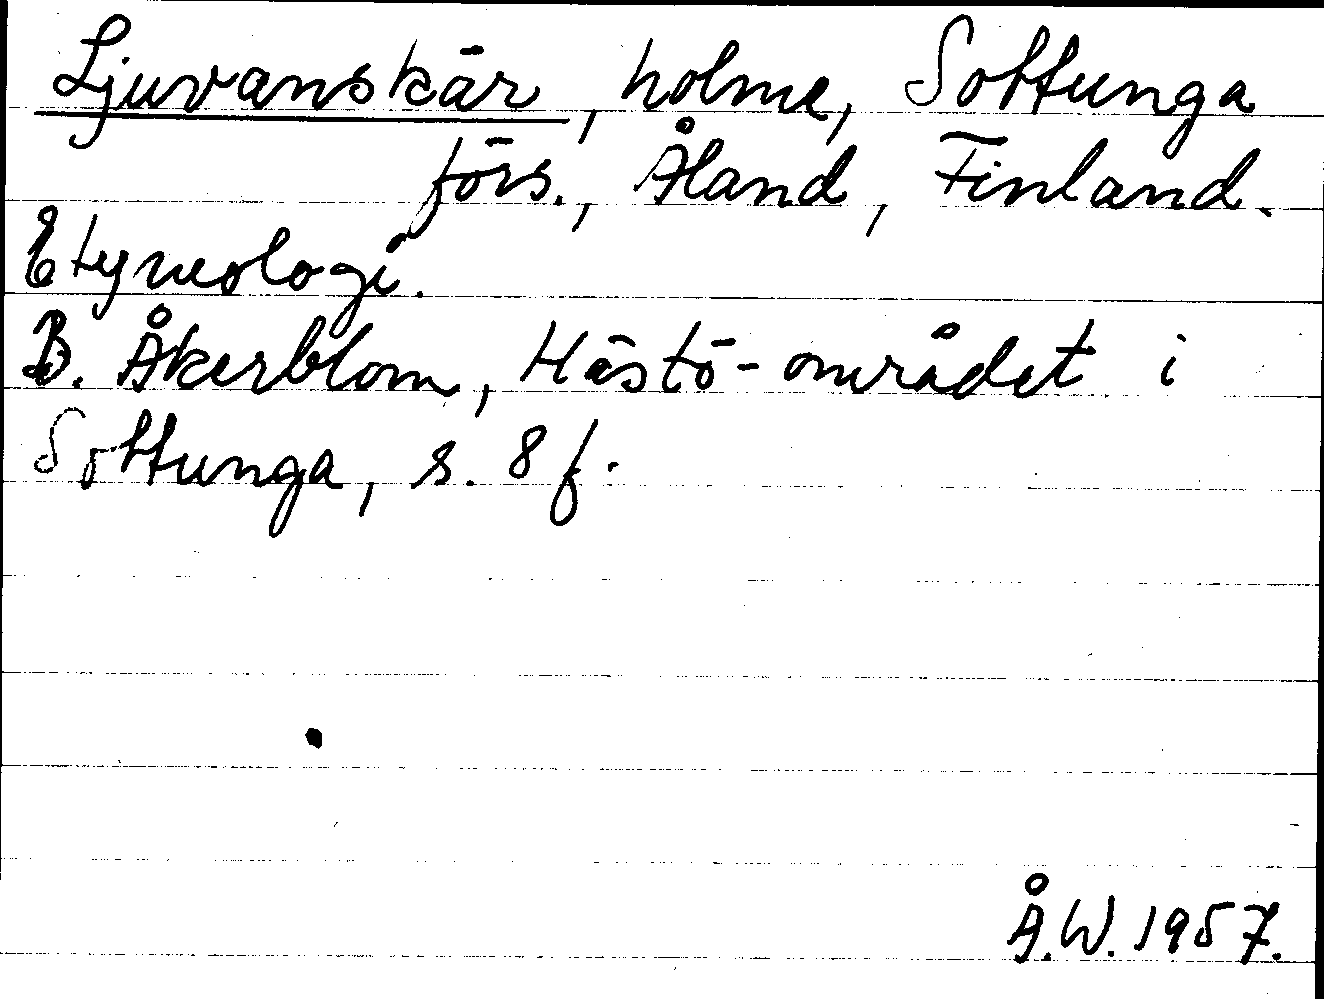 Ljuvanskär, holme, Sottunga
förs., Åland, Finland.
Etymologi.
B. Åkerblom, Hästö-området i
Sottunga, s. 8 f.
Å.W. 1957.